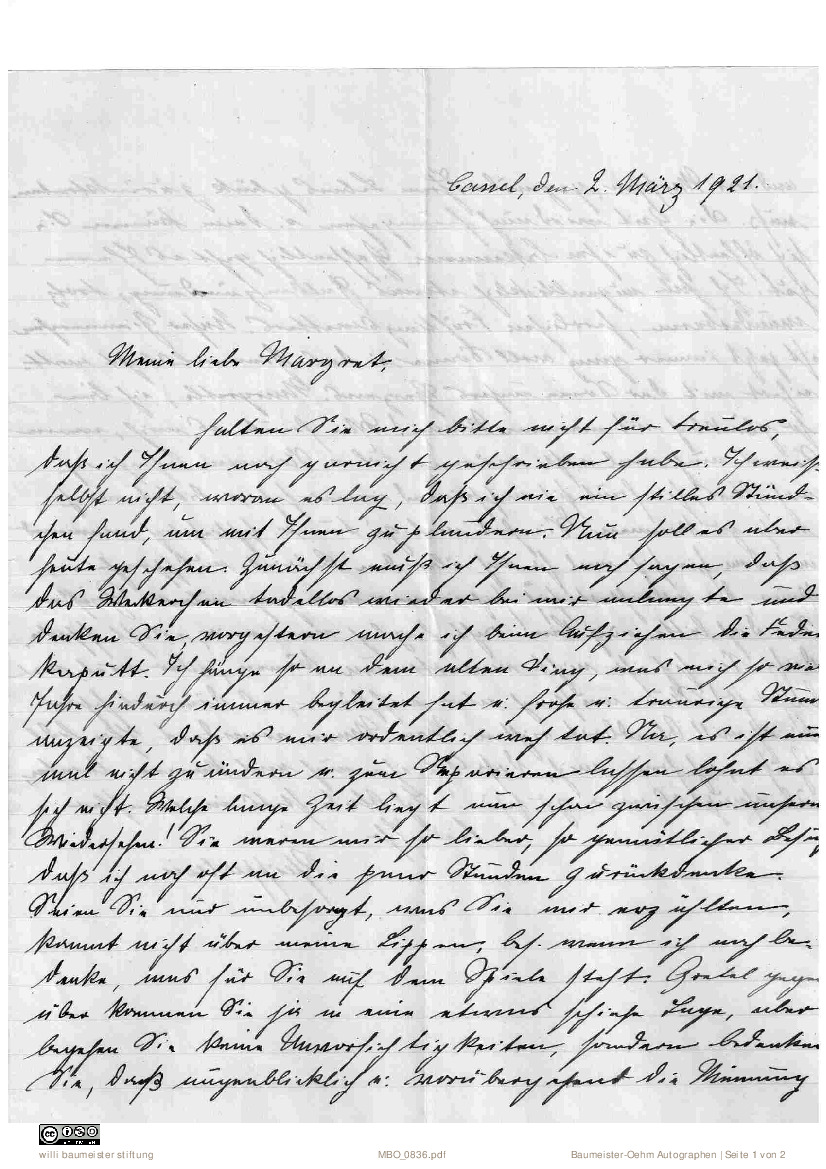 Cassel, den 2. März 1921.
Meine liebe Margret,
halten Sie mich bitte nicht für treulos,
daß ich Ihnen noch garnicht geschrieben habe. Ich weiß
selbst nicht, woran es lag, daß ich nie ein stilles Stünd-
chen fand, um mit Ihnen zu plaudern. Nun soll es aber
heute geschehen. Zunächst muß ich Ihnen noch sagen, daß
das Weckerchen tadellos wieder bei mir anlangte und
denken Sie, vorgestern mache ich beim Aufziehen die Feder
kaputt. Ich hänge so an dem alten Ding, was mich so vie
Jahre hindurch immer begleitet hat u. frohe u. traurige Stun
anzeigte, daß es mir ordentlich weh tat. Na, es ist nun
mal nicht zu ändern u. zum Reparieren lassen lohnt es
sich nicht. Welche lange Zeit liegt nun schon zwischen unserm
Wiedersehen! Sie waren mir so lieber, so gemütlicher Besuch
daß ich noch oft an die paar Stunden zurückdenke.
Seien Sie nur unbesorgt, was Sie mir erzählten,
kommt nicht über meine Lippen, bes. wenn ich noch be-
denke, was für Sie auf dem Spiele steht. Gretel gegen
über kommen Sie ja in eine etwas schiefe Lage, aber
begehen Sie keine Unvorsichtigkeiten, sondern bedenken
Sie, daß augenblicklich u. vorübergehend die Meinung
willi baumeister stiftung
MBO_0836.pdf
Baumeister-Oehm Autographen | Seite 1 von 2